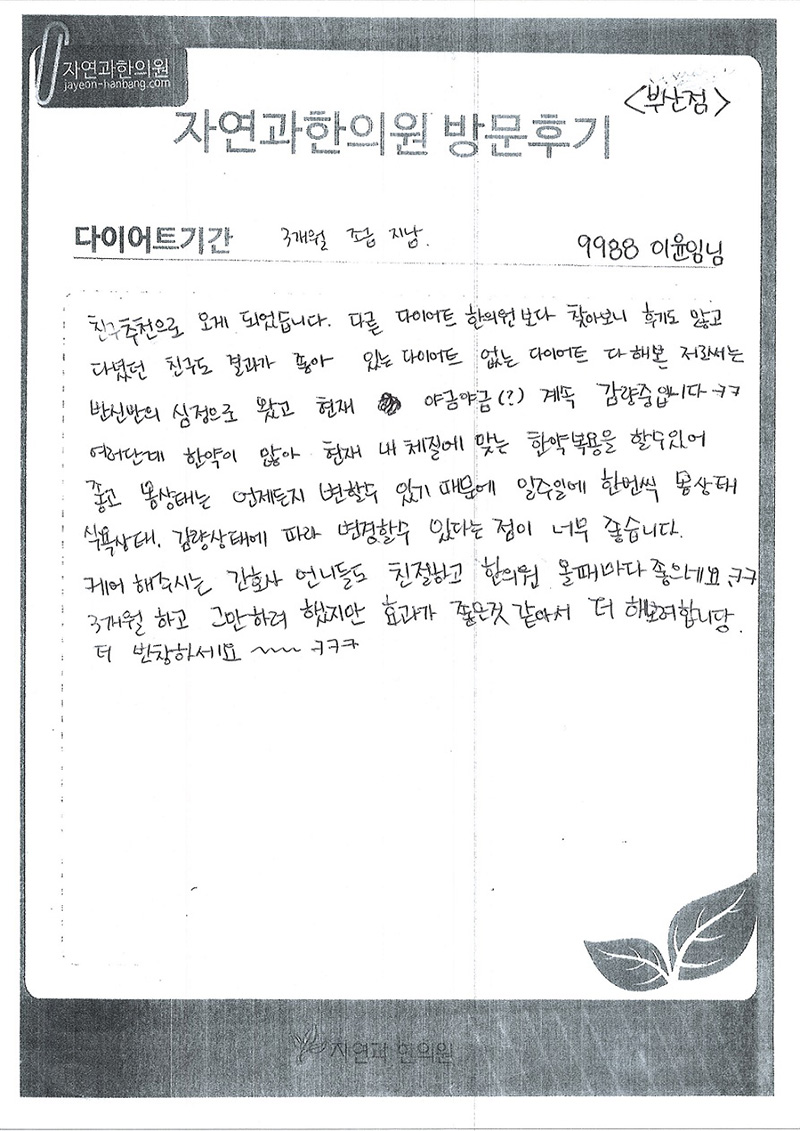 자연과한의원
jayeon-hanbang.com
<부산점>
자연과한의원 방문후기
다이어트기간 3개월 조금 지남.
9988 이윤임님
친구추천으로 오게 되었습니다. 다른 다이어트 한의원보다 찾아보니 후기도 많고
다녔던 친구도 결과가 좋아 있는 다이어트 없는 다이어트 다 해본 저로써는
반신반의 심정으로 왔고 현재 야금야금(?) 계속 감량중입니다 ㅋㅋ
여러단계 한약이 많아 현재 내 체질에 맞는 한약복용을 할수있어
좋고 몸상태는 언제든지 변할수 있기 때문에 일주일에 한번씩 몸상태
식욕상태, 감량상태에 따라 변경할수 있다는 점이 너무 좋습니다.
케어 해주시는 간호사 언니들도 친절하고 한의원 올때마다 좋으네요 ㅋㅋ
3개월 하고 그만하려 했지만 효과가 좋은것 같아서 더 해보려합니당.
더 번창하세요 ~~~ ㅋㅋㅋ
자연과 한의원